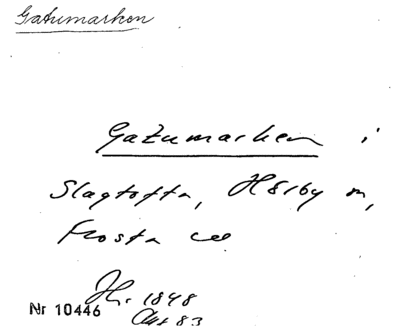 Gatumarken
Gatumarken i
Slagtofta, Hörby sn,
Frosta
1848
Nr 10446
Akt 83